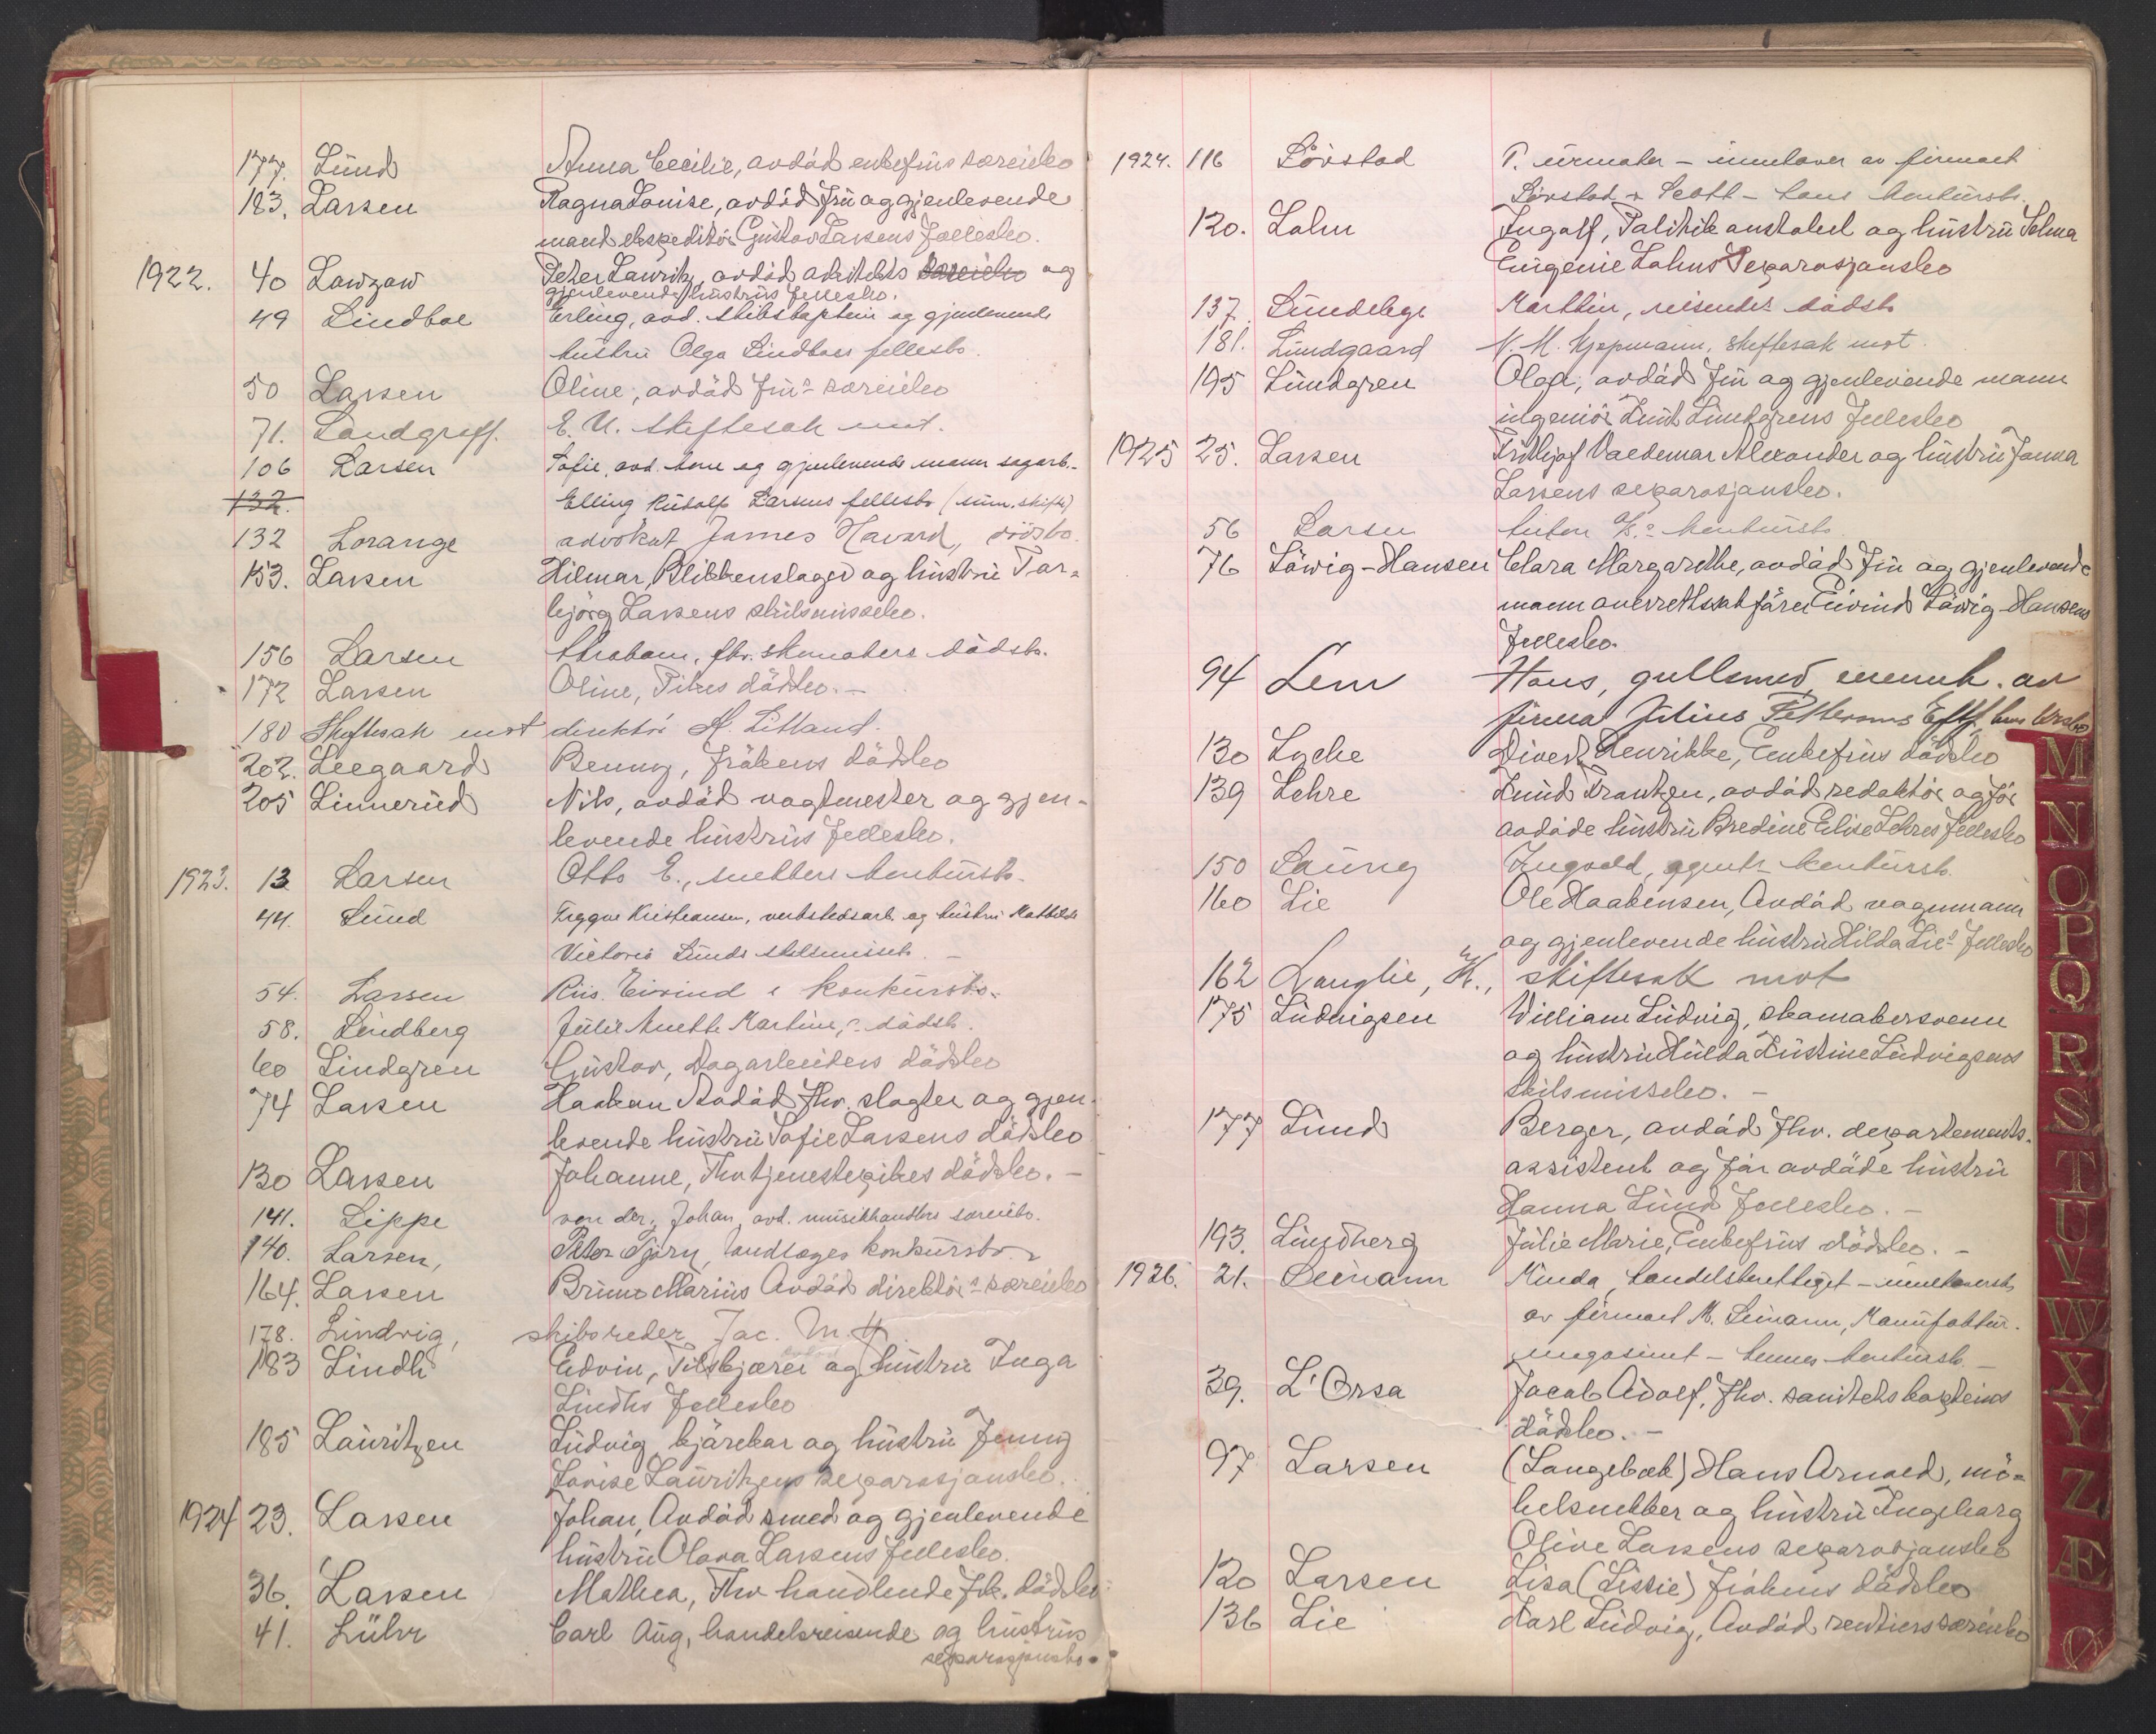 177. Lund Anna Cecilie, avdöd enkefrus særeiebo
183. Larsen Ragna Louise, avdöd fru og gjenlevende
mand ekspeditör Gustav Larsens fællesbo.
1922. 40 Lawzow Peter Lauritz, avdöd arkitekts særeiebo og
gjenlevende hustrus fellesbo.
49 Lindboe Erling, avd. skibskaptein og gjenlevende
hustru Olga Lindboes fellesbo.
50 Larsen Oline, avdöd frus særeiebo
71. Landgraff. E. U. skiftesak mot.
106 Larsen Sofie, avd. kone og gjenlevende mann sagarb.
132. Elling Rudolf Larsens fellesbo (sum. skifte)
132 Lorange advokat James Havard, dödsbo.
153. Larsen Hilmar, Blikkenslager og hustru Tor-
björg Larsens skilsmissebo.
156 Larsen Abraham, fhv. skomakers dödsbo.
172 Larsen Oline, Pikes dödsbo. -
180 Skiftesak mot direktör A. Litland.
202. Leegaard Benny, frökens dödsbo
205 Linnerud Nils, avdöd vagtmester og gjen-
levende hustrus fellesbo.
1923. 13 Larsen Otto E., snekkers konkursbo.
44. Lund Trygve Kristiansen, verkstedsarb. og hustru Mathilde
Victoria Lunds skilsmissebo. -
54. Larsen Riis. Eivind s konkursbo.
58. Lindberg Julie Anette Martine, s dödsbo.
60 Lindgren Gustav, Dagarbeiders dödsbo
74 Larsen Haakan Avdöd fhv. slagter og gjen-
levende hustru Sofie Larsens dödsbo
130 Larsen Johanne, Fhv tjenestepikes dödsbo. -
141. Lippe von der, Johan, avd. musikhandlers særeiebo.
140. Larsen, Peter Björn, tandlæges konkursbo.
164. Larsen Bruno Marius Avdöd direktörs særeiebo
178. Lindvig, skibsreder Jac. M. H.
183 Lindh Edvin, Pilskjærer og hustru Inga
Lindhs fellesbo
185 Lauritzen Ludvig, kjörekar og hustru Jenny
Lovise Lauritzens separasjonsbo.
1924 23. Larsen Johan, Avdöd smed og gjenlevende
hustru Olava Larsens fellesbo.
36. Larsen Mathea, Fhv handlende frk. dödsbo
41. Lühr Carl Aug, handelsreisende og hustrus
separasjonsbo.
1924. 116 Lövstad T. urmaker - innehaver av firmaet
Lövstad & Scott - hans konkursbo.
120. Lohn Ingolf, Politikonstabel og hustru Selma
Eugenie Lohns Separasjonsbo
137. Lundeby Marthin, reisendes dödsbo
181. Lundgaard N. M. kjøpmann, skiftesak mot.
195 Lundgren Olga, avdöd fru og gjenlevende mann
ingeniör Knut Lundgrens fellesbo
1925 25. Larsen Fridtjof Valdemar Alexander og hustru Janna
Larsens separasjonsbo.
56 Larsen Anton A/S. konkursbo
76 Löwig-Hansen Clara Margarethe, avdöd fru og gjenlevende
mann overrettssakförer Eivind Löwig-Hansens
fellesbo.
94 Lem Hans, gullsmed, inneh. av
firma Julius Pettersens Eftf, hans
130 Lyche Divert Henrikke, Enkefrus dödsbo
139 Lehre Knud Frantzen, avdöd redaktör og för
avdöde hustru Bredine Elise Lehres fellesbo
150 Laung Ingvald, agents konkursbo.
160 Lie Ole Haakensen, Avdöd vognmann
og gjenlevende hustru Hilda Lies fellesbo
162 Langlie, K., skiftesak mot
175 Ludvigsen William Ludvig, skomakersvenn
og hustru Hulda Kristine Ludvigsens
skilsmissebo. -
177 Lund Berger, avdöd fhv. departements-
assistent og før avdöde hustru
Hanna Lund fellesbo. -
193. Lundberg Julie Marie, Enkefrus dödsbo. -
1926. 21. Leimann Minda, handelsberettiget - innehaversk
av firmaet M. Leimann, Manufaktur-
magasinet - hennes konkursbo. -
39. L'Orsa Jacob Adolf, fhv. sanitetskapteins
dödsbo. -
97 Larsen (Langebæk) Hans Arnold, mö-
belsnekker og hustru Ingeborg
Olive Larsens separasjonsbo
120 Larsen Lisa (Lissie) frökens dödsbo
136 Lie Karl Ludvig, Avdöd rentiers særeiebo
M
N
O
P
Q
R
S
T
U
V
W
X
Y
Z
Æ
Ø